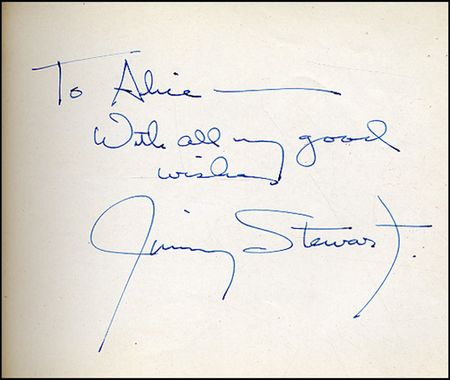 To Alice —
With all my good
wishes,
Jimmy Stewart.